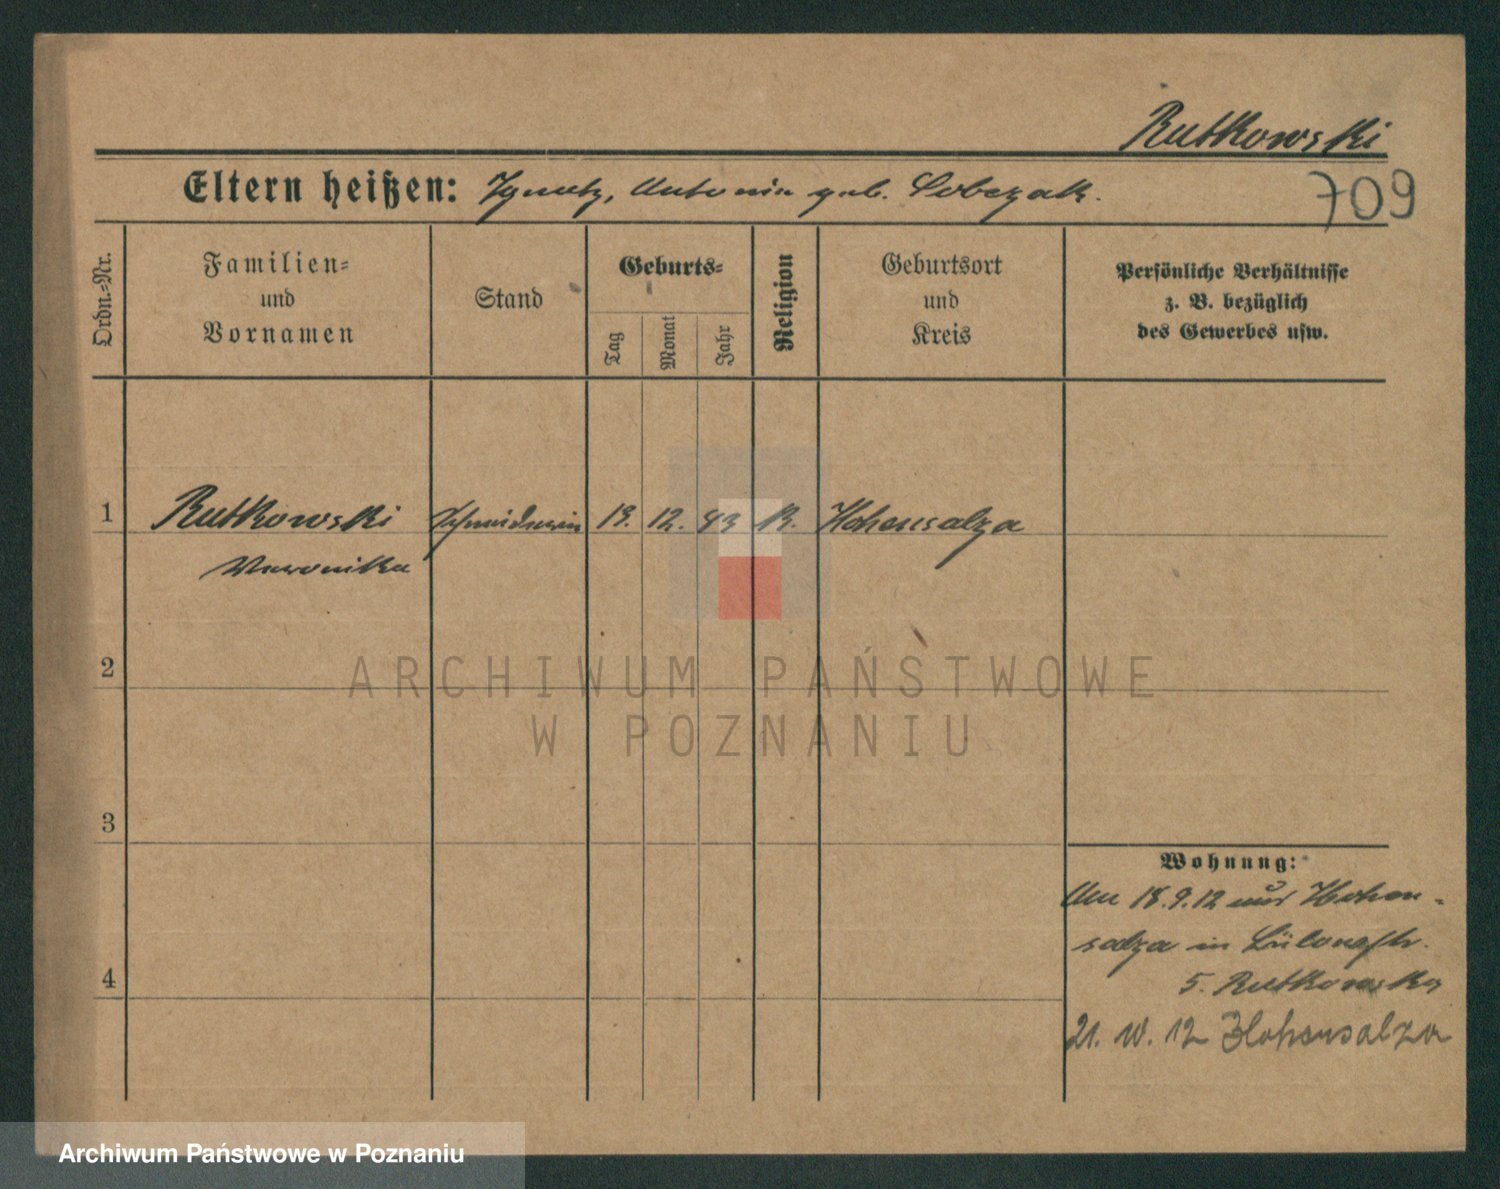 Rutkowski
Eltern heißen: Ignatz, Antonin geb. Sobczak.
709
Ordn.-Nr.
Familien- und Vornamen
Stand
Geburts-
Tag
Monat
Jahr
Religion
Geburtsort und Kreis
Persönliche Verhältnisse z. B. bezüglich des Gewerbes usw.
1 Rutkowski Schneiderin 19. 12. 93 K. Hohensalza
Weronika
2
ARCHIWUM PAŃSTWOWE
W POZNANIU
3
Wohnung:
Am 18.9.12 aus Hohen-
salza in
4
5. Rutkowska
21. 10. 12 Hohensalza
Archiwum Państwowe w Poznaniu